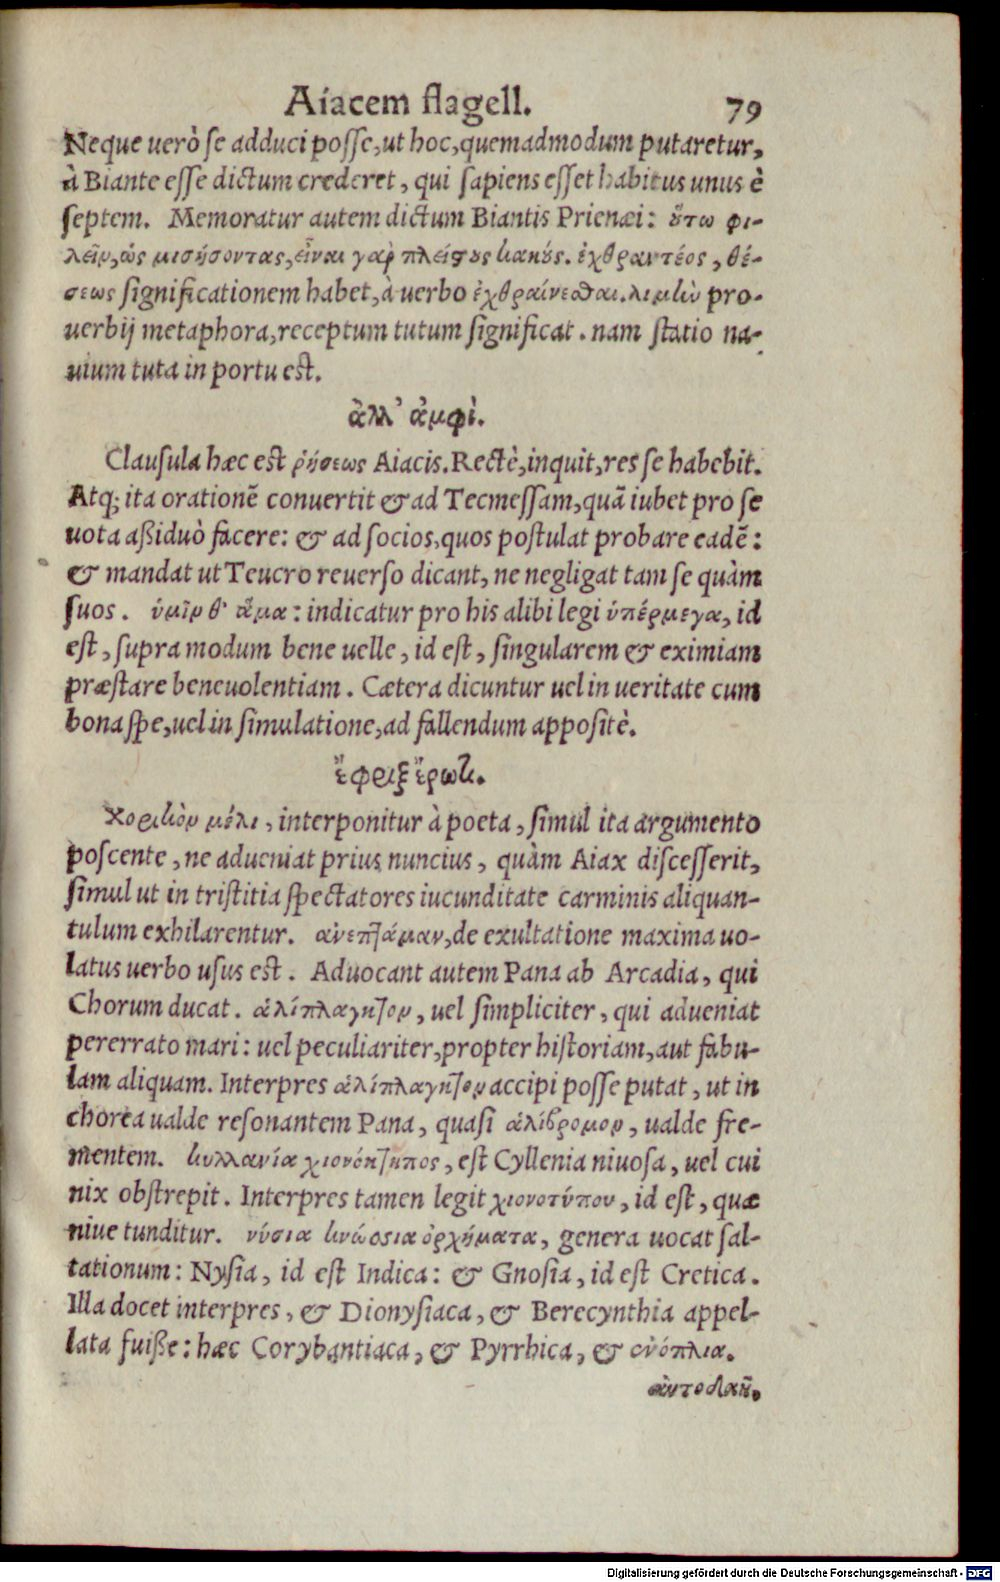 Aiacem flagell. 79
Neque uerò se adduci posse, ut hoc, quemadmodum putaretur,
à Biante esse dictum crederet, qui sapiens esset habitus unus è
septem. Memoratur autem dictum Biantis Prienæi: ὅτω φι-
λεῖν, ὡς μισήσοντας, εἶναι γὰρ πλείςους κακούς. ἐχθραντέος, θέ-
σεως significationem habet, à uerbo ἐχθραίνεσθαι. λιμὴν pro-
uerbij metaphora, receptum tutum significat. nam statio na-
uium tuta in portu est.
ἀλλ' ἀμφὶ.
Clausula hæc est ῥήσεως Aiacis. Rectè, inquit, res se habebit.
Atq; ita orationē conuertit & ad Tecmessam, quā iubet pro se
uota aßiduò facere: & ad socios, quos postulat probare eadē:
& mandat ut Teucro reuerso dicant, ne negligat tam se quàm
suos. ὑμῖν θ' ἅμα: indicatur pro his alibi legi ὑπέρμεγα, id
est, supra modum bene uelle, id est, singularem & eximiam
præstare beneuolentiam. Cætera dicuntur uel in ueritate cum
bona spe, uel in simulatione, ad fallendum appositè.
ἔφριξ ἔρωτι.
Χορικὸν μέλι, interponitur à poeta, simul ita argumento
poscente, ne adueniat prius nuncius, quàm Aiax discesserit,
simul ut in tristitia spectatores iucunditate carminis aliquan-
tulum exhilarentur. ἀνεπτάμαν, de exultatione maxima uo-
latus uerbo usus est. Aduocant autem Pana ab Arcadia, qui
Chorum ducat. ἁλίπλαγκτον, uel simpliciter, qui adueniat
pererrato mari: uel peculiariter, propter historiam, aut fabu-
lam aliquam. Interpres ἁλίπλαγκτον accipi posse putat, ut in
chorea ualde resonantem Pana, quasi ἁλίβρομον, ualde fre-
mentem. κυλλανία χιονόκτυπος, est Cyllenia niuosa, uel cui
nix obstrepit. Interpres tamen legit χιονοτύπου, id est, quæ
niue tunditur. νύσια κνώσια ὀρχήματα, genera uocat sal-
tationum: Nysia, id est Indica: & Gnosia, id est Cretica.
Illa docet interpres, & Dionysiaca, & Berecynthia appel-
lata fuiße: hæc Corybantiaca, & Pyrrhica, & ἐνόπλια.
αὐτοδαῆ,
Digitalisierung gefördert durch die Deutsche Forschungsgemeinschaft - DFG